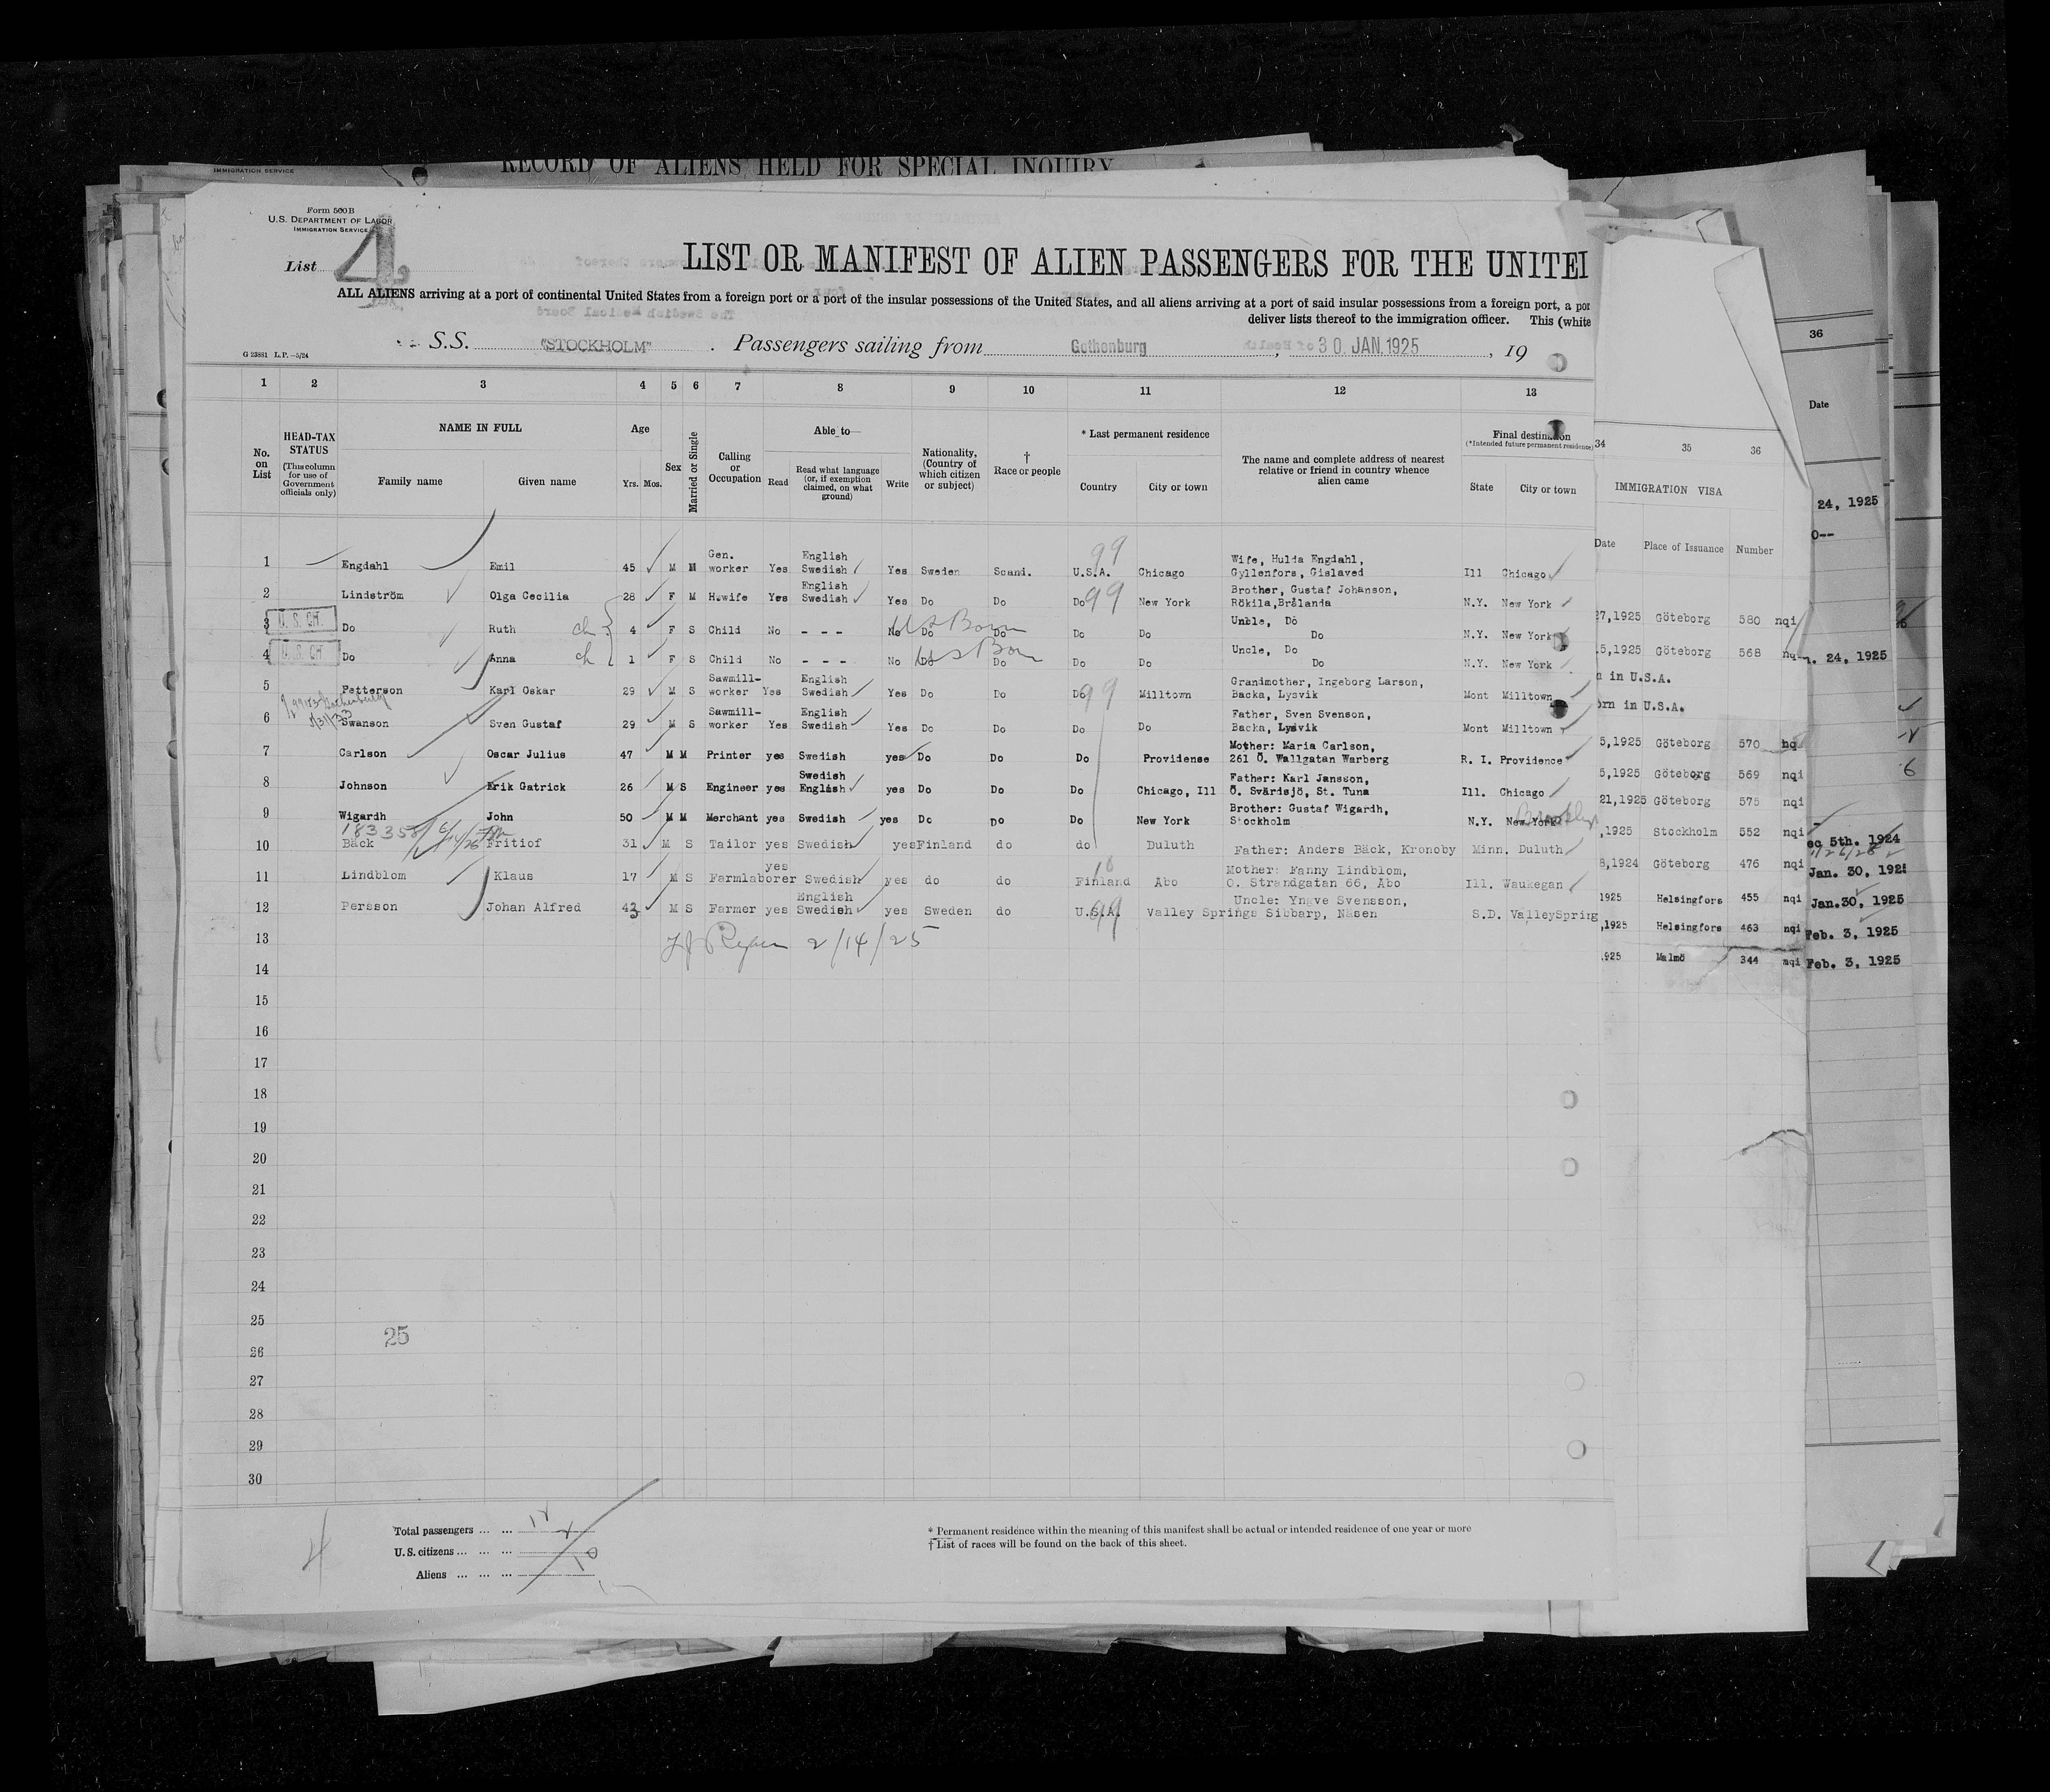 RECORD OF ALIENS HELD FOR SPECIAL INQUIRY
IMMIGRATION SERVICE
Form 500 B
U.S. DEPARTMENT OF LABOR
IMMIGRATION SERVICE
List 4
LIST OR MANIFEST OF ALIEN PASSENGERS FOR THE UNITE
ALL ALIENS arriving at a port of continental United States from a foreign port or a port of the insular possessions of the United States, and all aliens arriving at a port of said insular possessions from a foreign port, a por
deliver lists thereof to the immigration officer. This (white
G 23881 L.P.—5/24
S.S. "STOCKHOLM" . Passengers sailing from Gothenburg , 30. JAN. 1925 , 19
1 2 3 4 5 6 7 8 9 10 11 12 13
No. on List
HEAD-TAX STATUS (This column for use of Government officials only)
NAME IN FULL
Family name Given name
Age
Yrs. Mos.
Sex
Married or Single
Calling or Occupation
Able to—
Read
Read what language (or, if exemption claimed, on what ground)
Write
Nationality, (Country of which citizen or subject)
† Race or people
* Last permanent residence
Country City or town
The name and complete address of nearest relative or friend in country whence alien came
Final destination
(*Intended future permanent residence)
State City or town
1 Engdahl Emil 45 M M Gen. worker Yes English Swedish Yes Sweden Scand. U.S.A. 99 Chicago Wife, Hulda Engdahl, Gyllenfors, Gislaved Ill Chicago
2 Lindström Olga Cecilia 28 F M H.wife Yes English Swedish Yes Do Do Do 99 New York Brother, Gustaf Johanson, Rökila, Brålanda N.Y. New York
3 U.S. CIT. Do Ruth ch 4 F S Child No - - - No Do US Born Do Do Do Uncle, Do Do N.Y. New York
4 U.S. CIT. Do Anna ch 1 F S Child No - - - No Do US Born Do Do Do Uncle, Do Do N.Y. New York
5 Petterson Karl Oskar 29 M S Sawmill-worker Yes English Swedish Yes Do Do Do 99 Milltown Grandmother, Ingeborg Larson, Backa, Lysvik Mont Milltown
6 Swanson Sven Gustaf 29 M S Sawmill-worker Yes English Swedish Yes Do Do Do Do Father, Sven Svenson, Backa, Lysvik Mont Milltown
7 Carlson Oscar Julius 47 M M Printer yes Swedish yes Do Do Do Providense Mother: Maria Carlson, 261 Ö. Wallgatan Warberg R. I. Providence
8 Johnson Erik Gatrick 26 M S Engineer yes Swedish English yes Do Do Do Chicago, Ill Father: Karl Jansson, Ö. Svärdsjö, St. Tuna Ill. Chicago
9 Wigardh John 50 M M Merchant yes Swedish yes Do Do Do New York Brother: Gustaf Wigardh, Stockholm N.Y. New York Brooklyn
183358
10 Bäck Fritiof 31 M S Tailor yes Swedish yes Finland do do Duluth Father: Anders Bäck, Kronoby Minn. Duluth
11 Lindblom Klaus 17 M S Farmlaborer yes Swedish yes do do Finland Abo Mother: Fanny Lindblom, O. Strandgatan 66, Abo Ill. Waukegan
12 Persson Johan Alfred 43 M S Farmer yes English Swedish yes Sweden do U.S.A. 99 Valley Springs Uncle: Yngve Svensson, Sibbarp, Näsen S.D. ValleySpring
13 Ryan 2/14/25
14
15
16
17
18
19
20
21
22
23
24
25
25
26
27
28
29
30
4
Total passengers ... ... 12
U.S. citizens ... ... ... 2
Aliens ... ... ... 10
* Permanent residence within the meaning of this manifest shall be actual or intended residence of one year or more
† List of races will be found on the back of this sheet.
34 35 36
IMMIGRATION VISA
Date Place of Issuance Number
27,1925 Göteborg 580 nqi
5,1925 Göteborg 568 nq
n in U.S.A.
orn in U.S.A.
5,1925 Göteborg 570 nq
5,1925 Göteborg 569 nqi
21,1925 Göteborg 575 nqi
,1925 Stockholm 552 nqi
8,1924 Göteborg 476 nqi
1925 Helsingfors 455 nqi
,1925 Helsingfors 463 nqi
1925 Malmö 344 nqi
36
Date
24, 1925
0--
n. 24, 1925
ec 5th. 1924
Jan. 30, 192
Jan.30, 1925
Feb. 3, 1925
Feb. 3, 1925
6